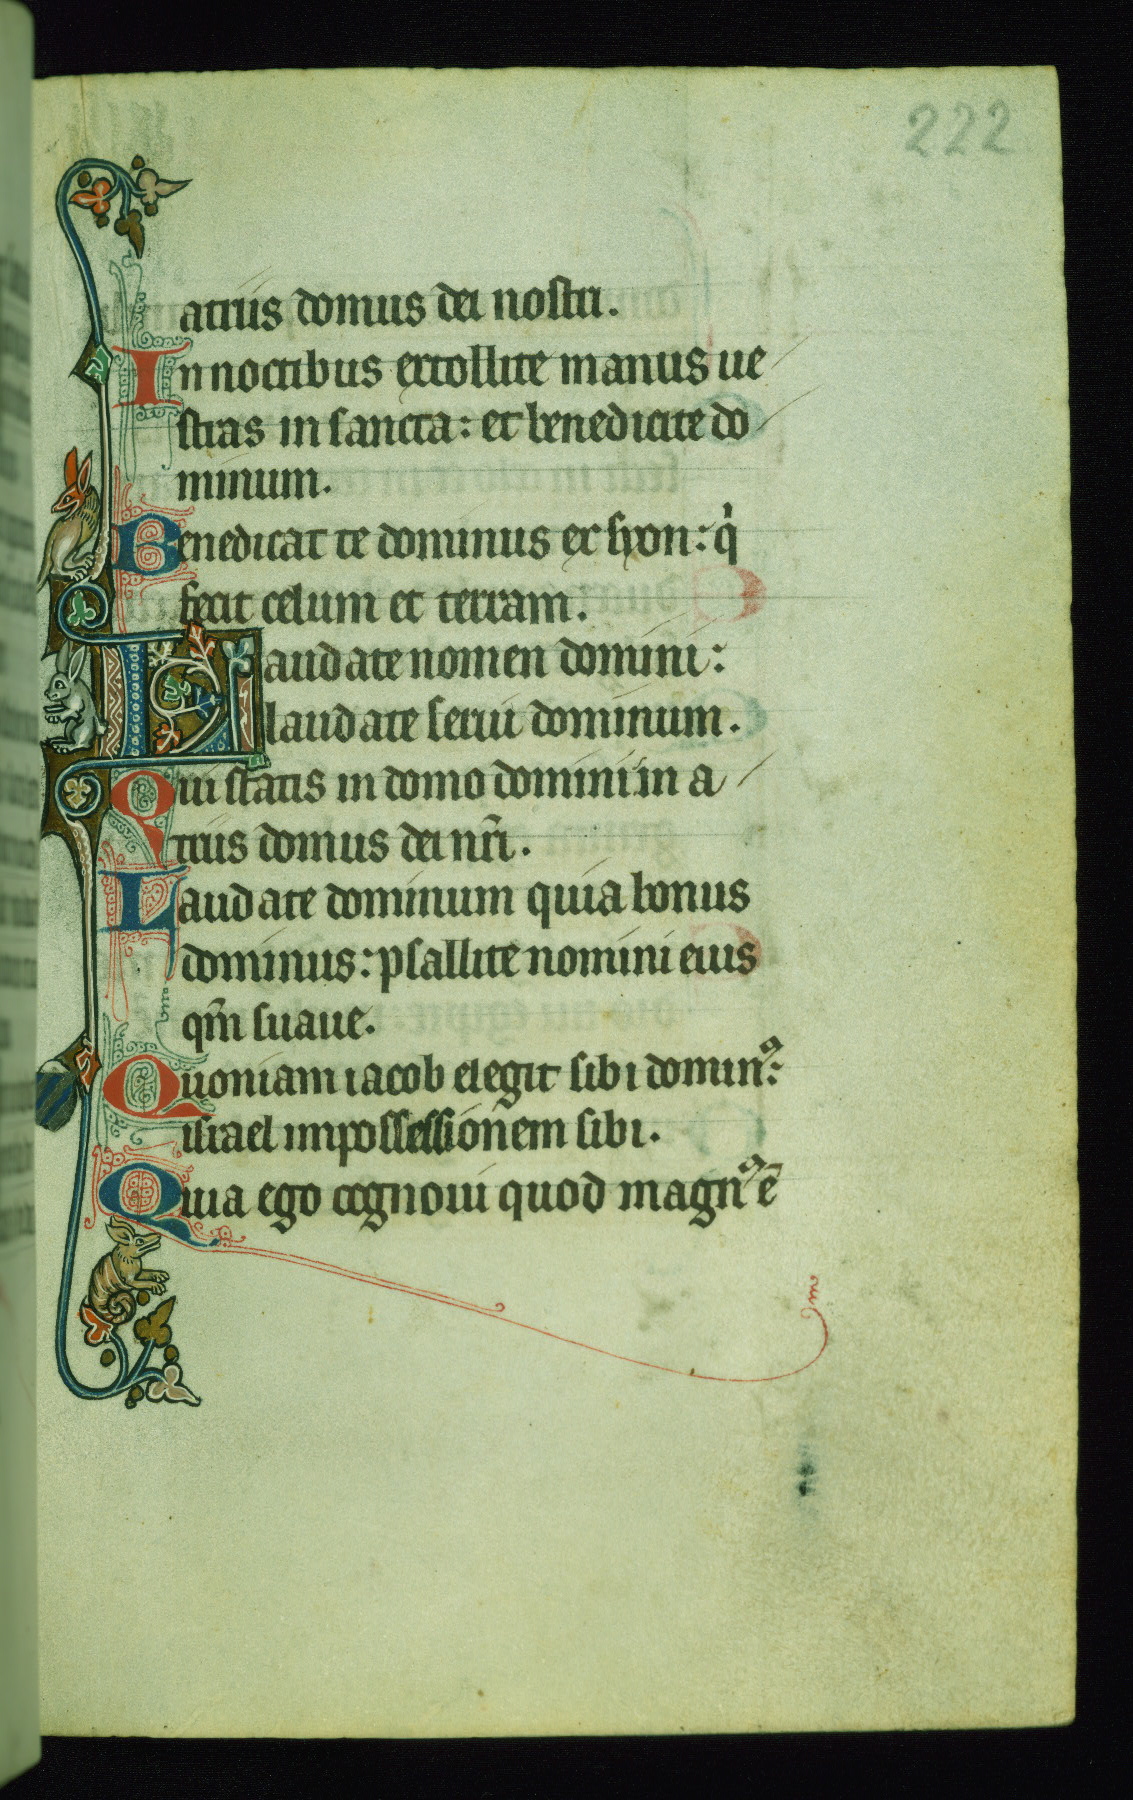 222
atriis domus dei nostri.
In noctibus extollite manus ue
stras in sancta: et benedicite do
minum.
Benedicat te dominus ex syon: q̇
fecit celum et terram.
Laudate nomen domini:
laudate serui dominum.
Qui statis in domo domini in a
triis domus dei nr̄i.
Laudate dominum quia bonus
dominus: psallite nomini eius
qm̄ suaue.
Quoniam iacob elegit sibi dominꝰ:
israel in possessionem sibi.
Quia ego cognoui quod magnꝰ ē